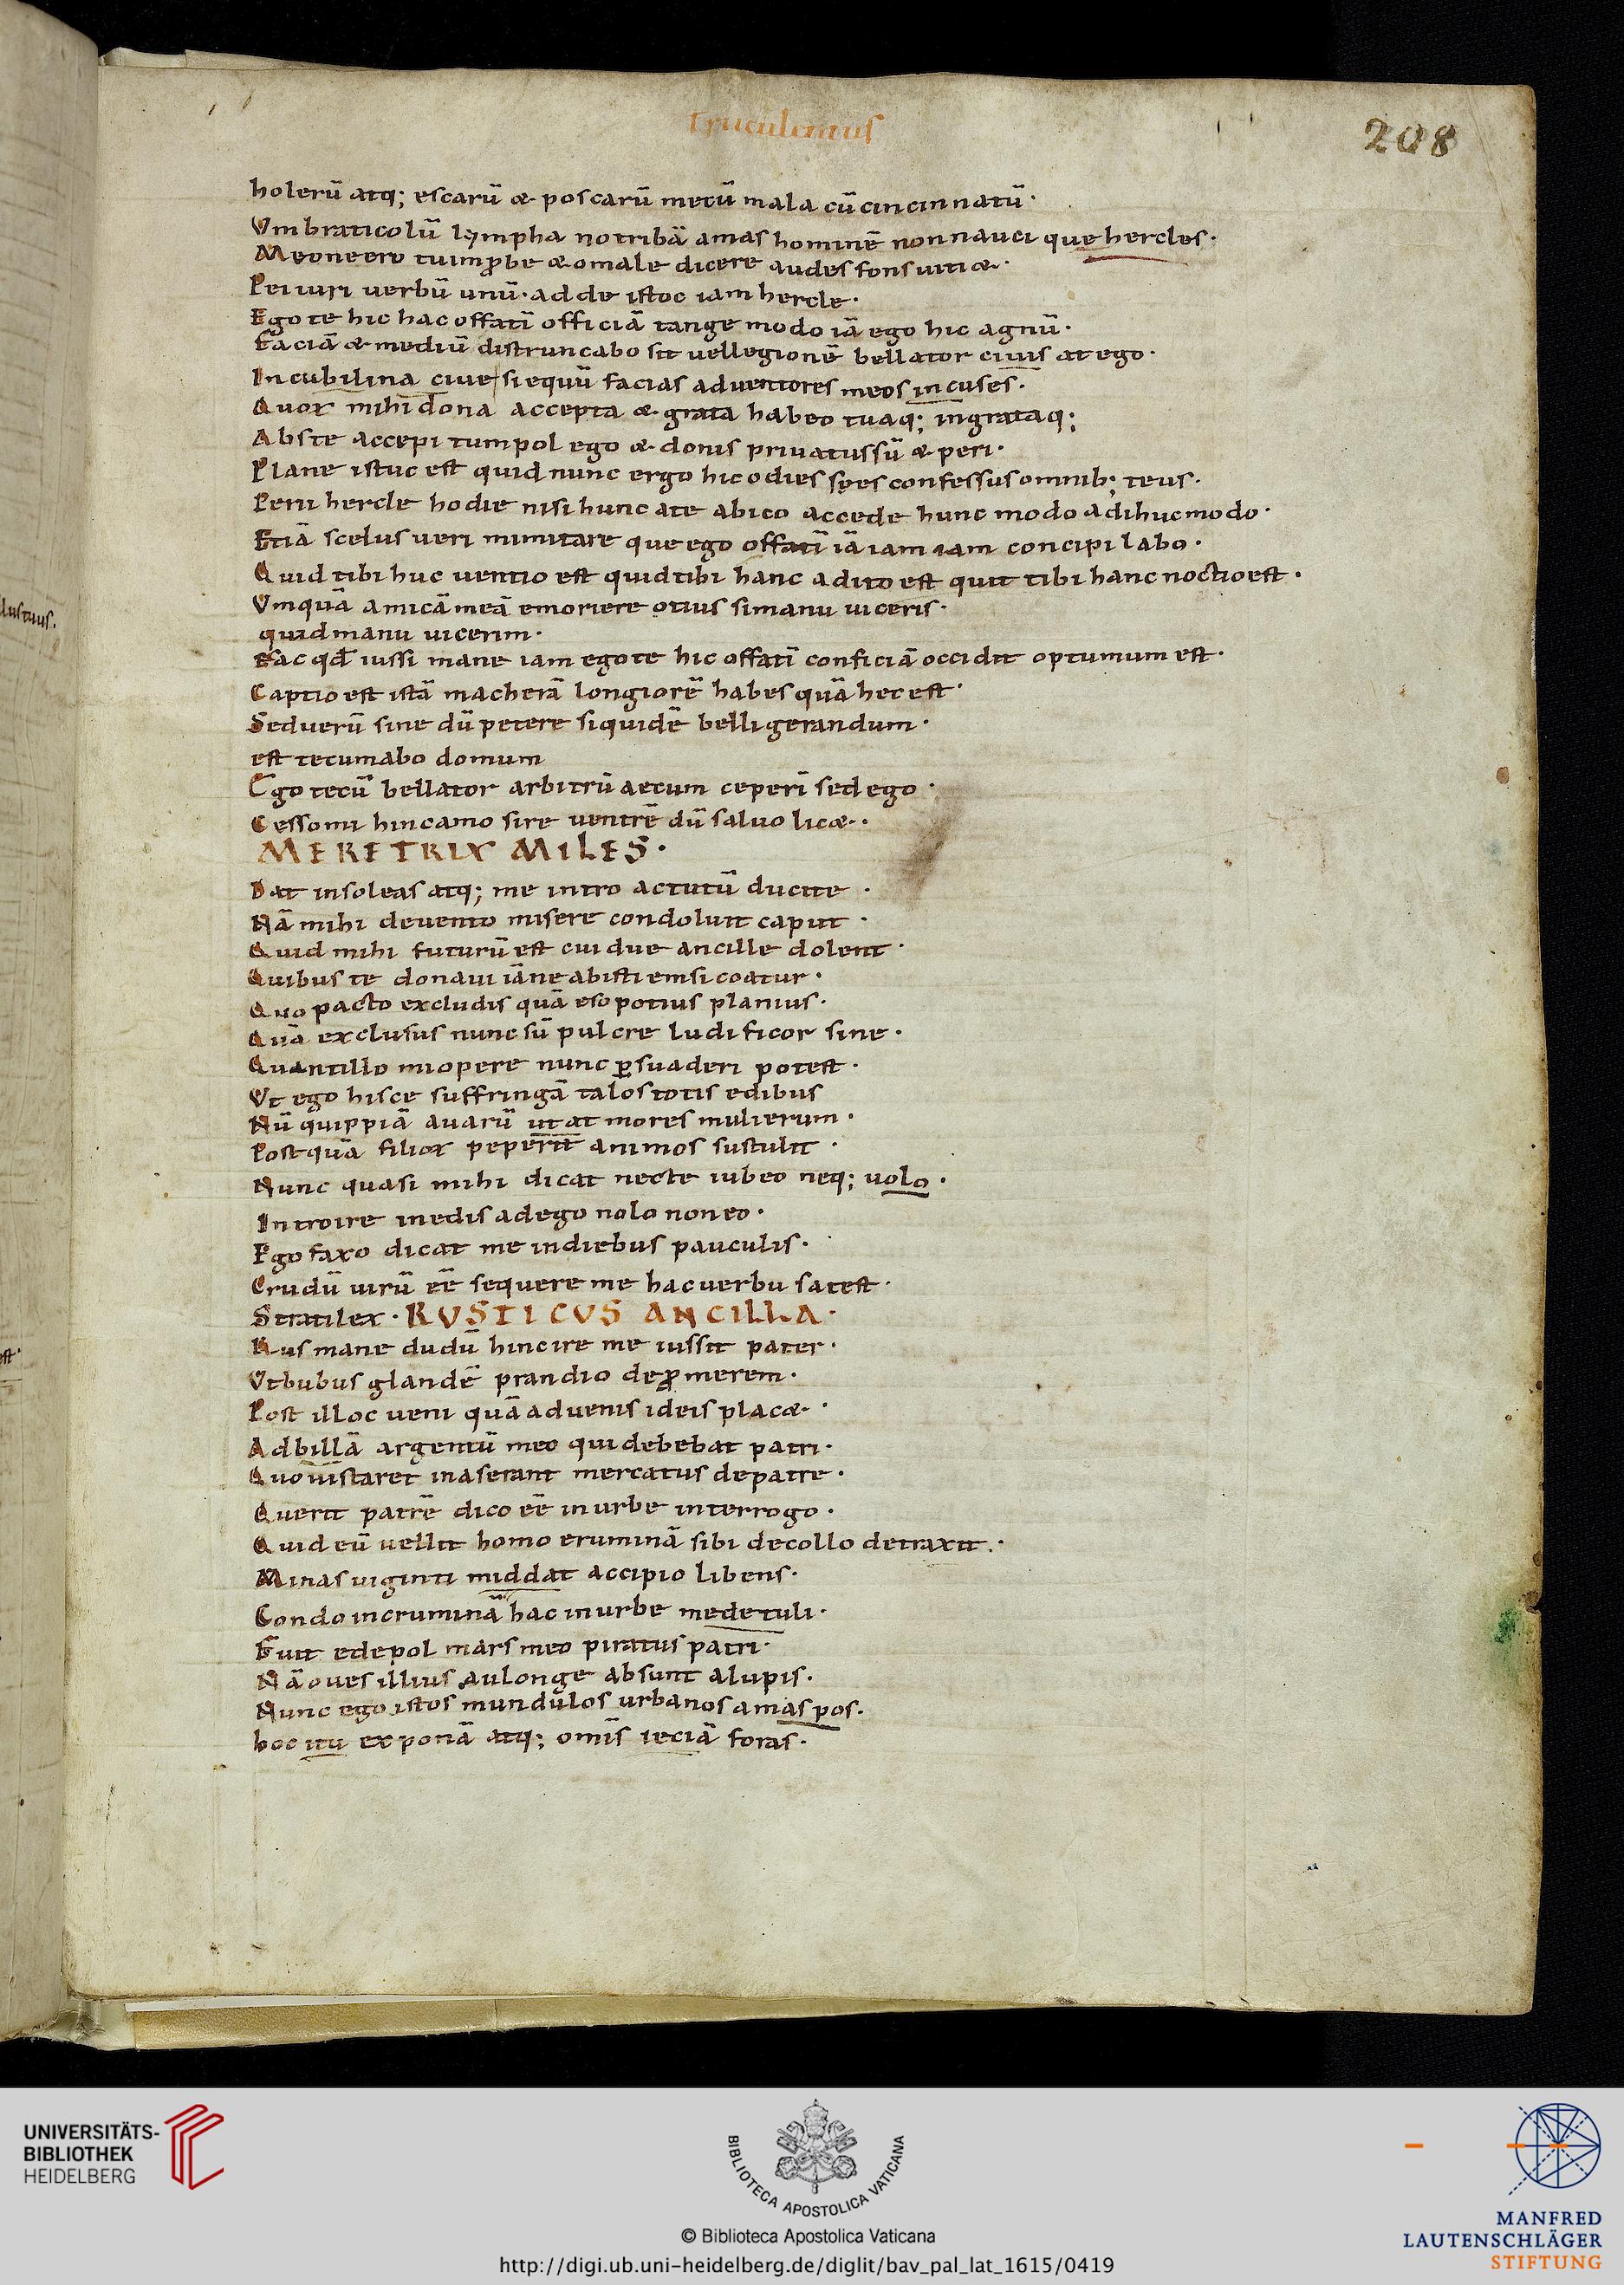 truculentus
208
holerū atq; escarū & poscarū metū mala cū cincinnatū·
Vmbraticolū lympha notribā amas hominē nonnauci que hercles·
Meoneero tuimꝓbe & omale dicere audes fons uiti&·
Peiuiri uerbū unū· adde istoc iam hercle·
Ego te hic hac offatī officiā tange modo iā ego hic agnū·
Faciā & mediū distruncabo sit uellegionē bellator ciuis at ego·
Incubilina ciue siequū facias aduentores meos incuses·
Quor mihi dona accepta & grata habeo tuaq; ingrataq;
Abs te accepi tum pol ego & donis priuatussū & peri·
Plane istuc est quid nunc ergo hic odies spes confessus omnib; teus·
Perii hercle hodie nisi hunc ate abico accede hunc modo adihuc modo·
Etiā scelus ueri minitare que ego offatī iā iam iam concipilabo·
Quid tibi huc uentio est quid tibi hanc adito est quit tibi hanc noctio est·
Vmquā amicā meā emoriere otius simanu uiceris·
quid manu uicerim·
Fac qđ iussi mane iam ego te hic offatī conficiā occidit optumum est·
Captio est istā macherā longiorē habes quā hec est·
Sed uerū sine dū petere siquidē belligerandum·
est tecumabo domum
Ego tecū bellator arbitrū aetum ceperī sed ego·
Cessomi hincamo sire uentrē dū saluo lic&·
MERETRIX MILES·
Dat insoleas atq; me intro actutū ducite·
Nā mihi deuento misere condoluit caput·
Quid mihi futurū est cui due ancille dolent·
Quibus te donaui iāne abisti emsicoatur·
Quo pacto excludis quā eso potius planius·
Quā exclusus nunc sū pulcre ludificor sine·
Quantillo miopere nunc ꝑsuaderi potest·
Vt ego hisce suffringā talos totis edibus
Nū quippiā auarū utat mores mulierum·
Postquā filior peperit animos sustulit·
Nunc quasi mihi dicat necte iubeo neq; uolo·
Introire inedis adego nolo noneo·
Ego faxo dicat me indiebus pauculis·
Crudū uirū eē sequere me hac uerbu satest·
Stratilex· RUSTICUS ANCILLA·
Rus mane dudū hincire me iussit pater·
Vtbubus glandē prandio deꝓmerem·
Post illoc ueni quā aduenis ideis plac&·
Adbillā argentū meo qui debebat patri·
Quouistaret inaserant mercatus depatre·
Querit patrē dico eē inurbe interrogo·
Quid eū uellit homo eruminā sibi decollo detraxit·
Minas uiginti middat accipio libens·
Condo incruminā hac inurbe medetuli·
Fuit edepol mars meo piratus patri·
Nā oues illius aulonge absunt alupis·
Nunc ego istos mundulos urbanos amas pos·
hoc itu exponā atq; omīs ieciā foras·
UNIVERSITÄTS-
BIBLIOTHEK
HEIDELBERG
BIBLIOTECA APOSTOLICA VATICANA
© Biblioteca Apostolica Vaticana
http://digi.ub.uni-heidelberg.de/diglit/bav_pal_lat_1615/0419
MANFRED
LAUTENSCHLÄGER
STIFTUNG